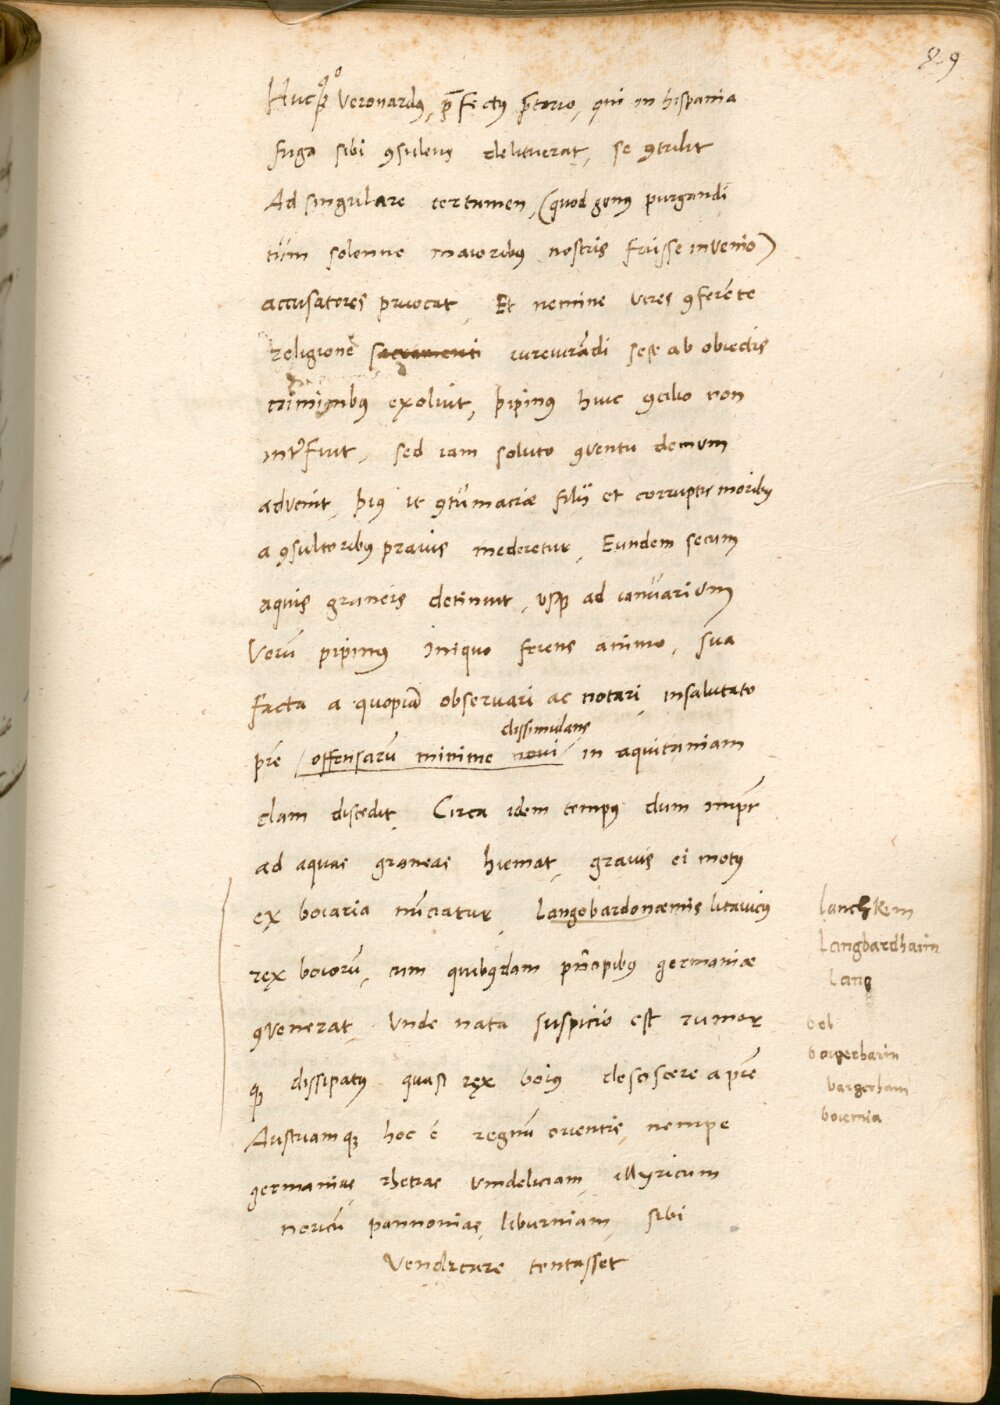 89
Hucꝙ Veronardꝰ, p̄fectꝰ p̄torio, qui in hispania
fuga sibi ꝯsulens delituerat, se ꝯtulit
Ad singulare certamen, (quod genꝰ purgandi
tūm solenne maioribꝰ nostris fuisse invenio)
accusatores prvocat, Et nemine vires ꝯferente
religione sacramenti iureiurādi sese ab obiectis
criminibꝰ exoluit, pipinꝰ huic ꝯcilio non
interfuit, sed iam soluto ꝯventu demum
advenit, piꝰ ut ꝯtumaciæ filij et corruptis moribꝰ
a ꝯsultoribꝰ pravis mederetur, Eundem secum
aquis graneis detinuit, usꝙ ad ianuarium
Verū pipinꝰ iniquo ferens animo, sua
facta a quopiā observari ac notari, insalutato
dissimulans
p̄re offensarū minime novi in aquitaniam
clam discedit, Circa idem tempꝰ dum imp̄r
ad aquas graneas hiemat, gravis ei motꝰ
ex boiaria nūciatur, Langobardonæmis litavicꝰ
rex boiorū, cum quibꝰdam pn̄cipibꝰ germaniæ
ꝯvenerat, Unde nata suspicio est rumor
qꝫ dissipatꝰ quasi rex boiꝰ desciscere a p̄re
Austriamqꝫ hoc ē regnū orientis, nempe
germanias, rhetias vindeliciam, illyricum
noricū pannonias, liburniam, sibi
Vendicare tentasset
lanchkem
Langbardhaim
Lang
bel
baierhaim
baigerham
boiemia